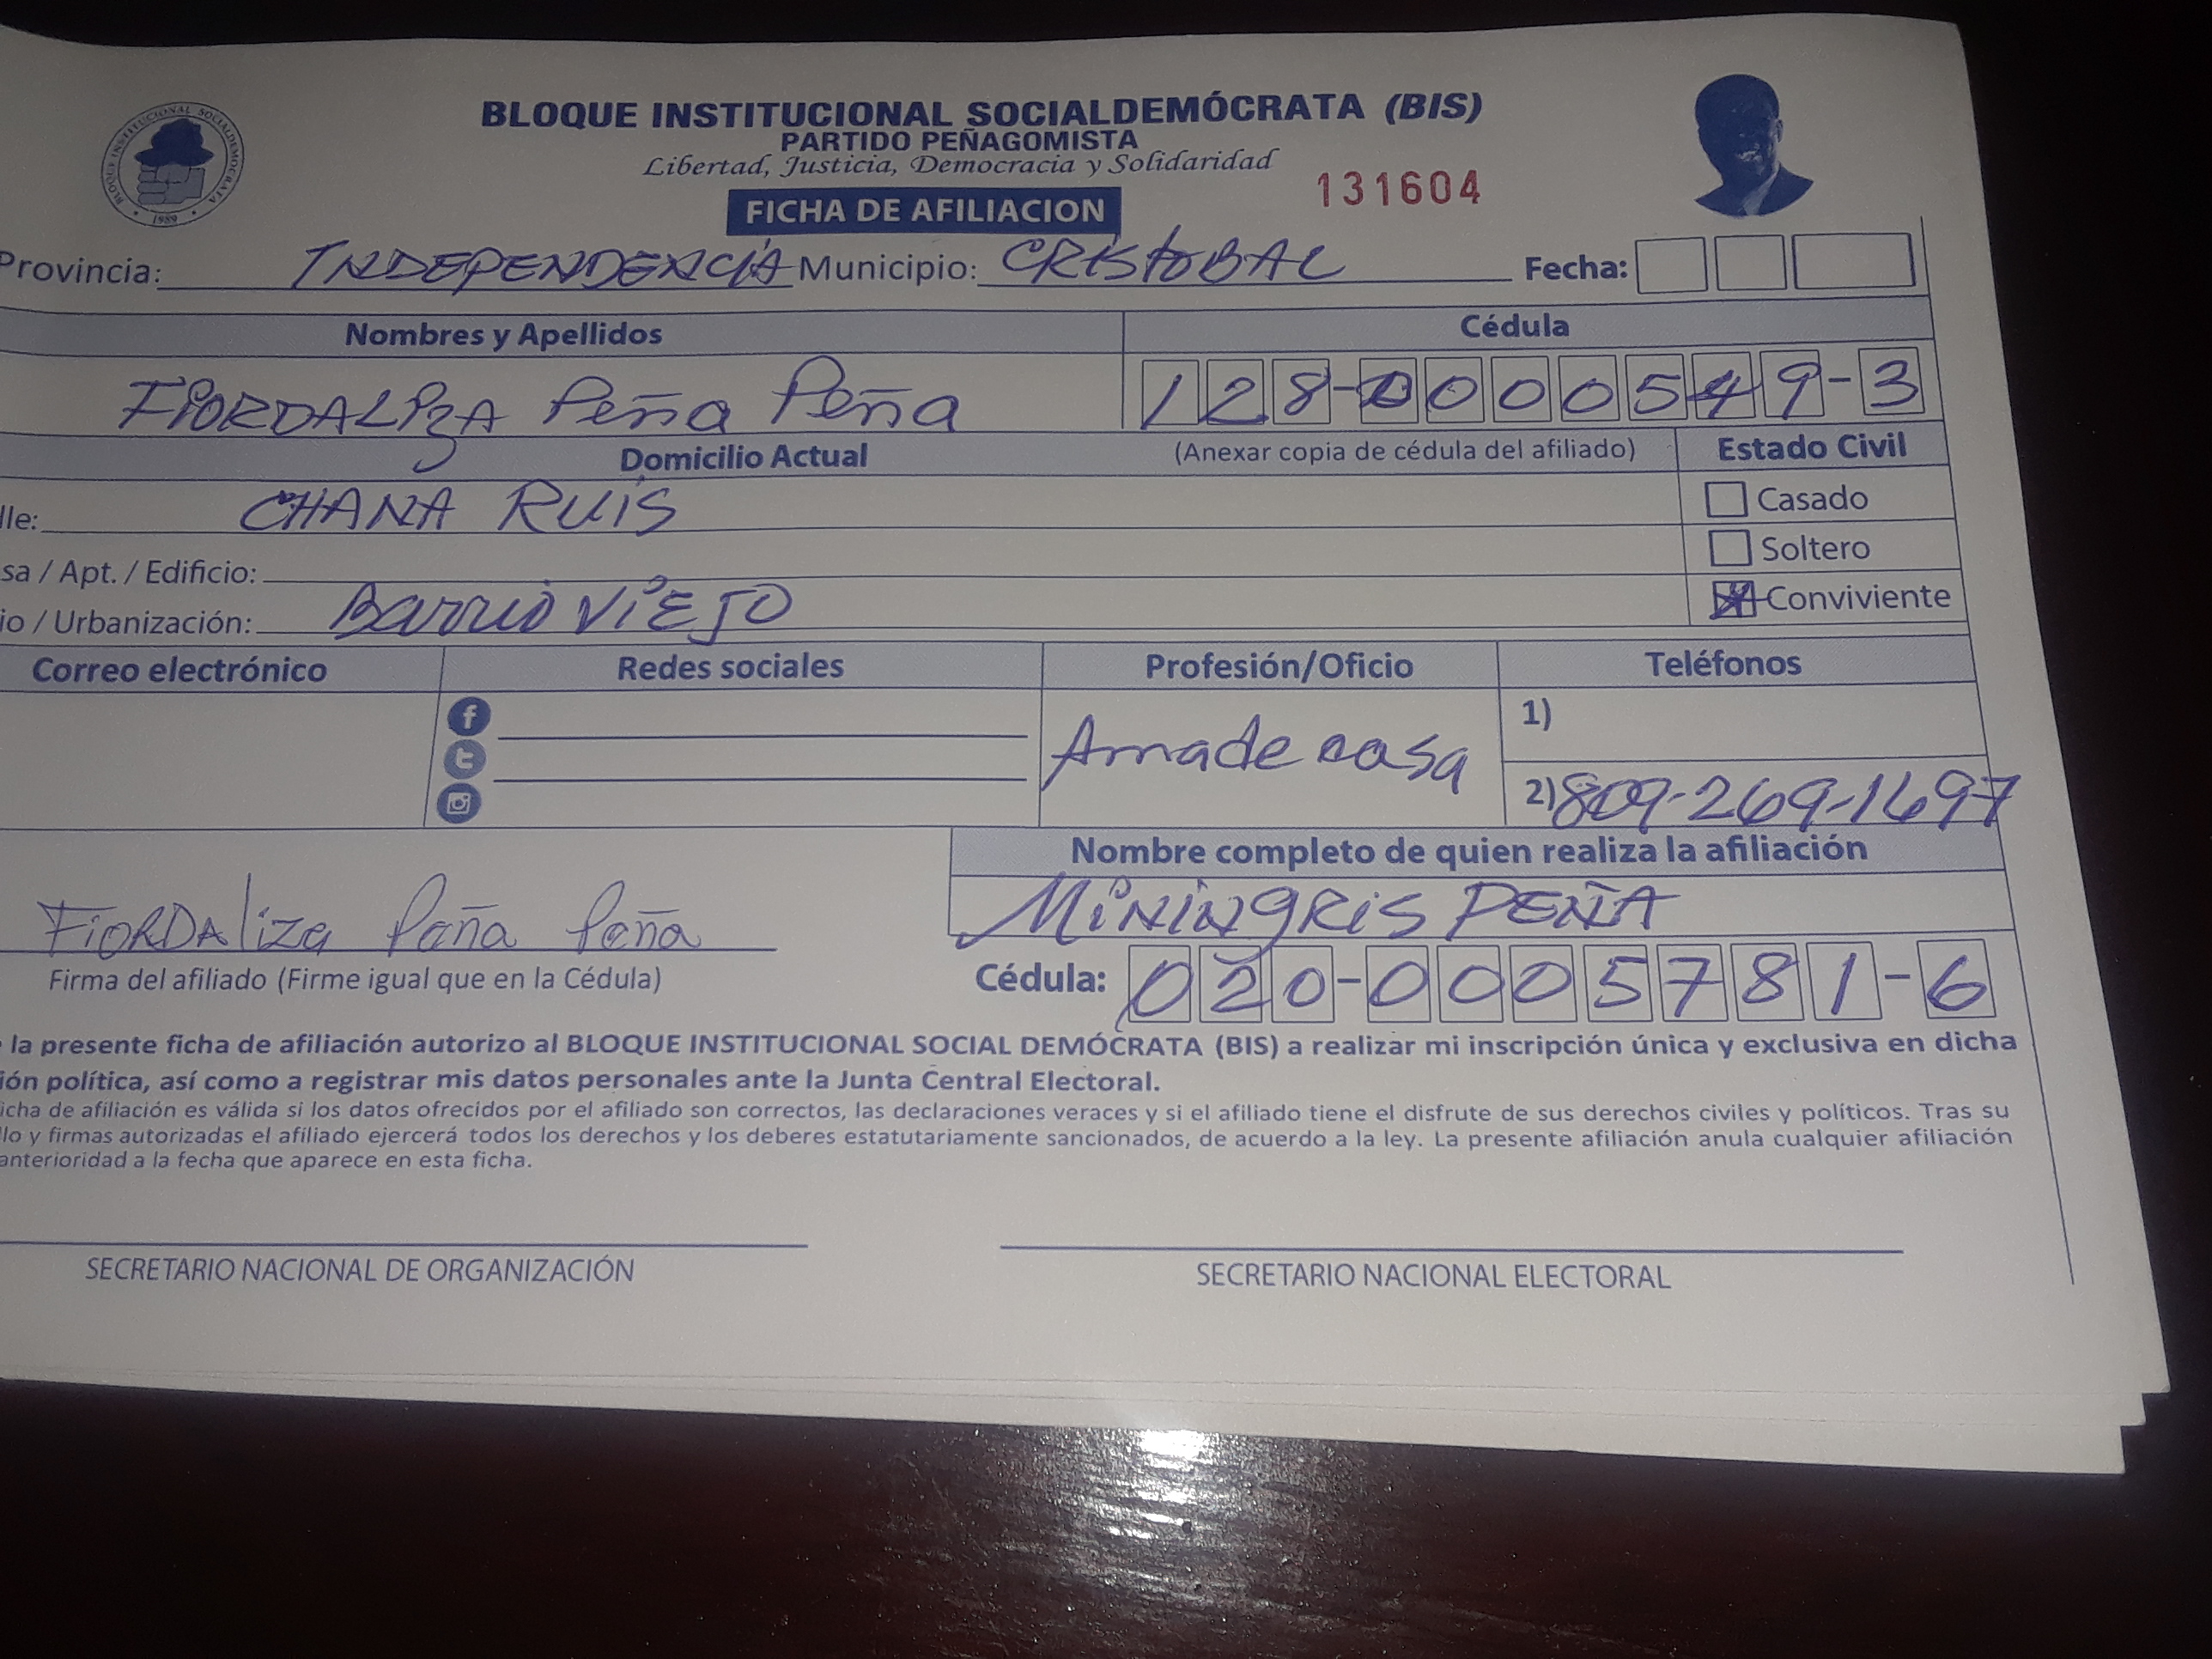 BLOQUE INSTITUCIONAL SOCIALDEMÓCRATA (BIS)
PARTIDO PEÑAGOMISTA
Libertad, Justicia, Democracia y Solidaridad
131604
FICHA DE AFILIACION
BLOQUE INSTITUCIONAL SOCIALDEMOCRATA
1989
Provincia: INDEPENDENCIA Municipio: CRISTOBAL Fecha:
Nombres y Apellidos Cédula
FIORDALIZA Peña Peña 128-0000549-3
Domicilio Actual (Anexar copia de cédula del afiliado) Estado Civil
lle: CHANA RUIS Casado
Soltero
sa / Apt. / Edificio:
io / Urbanización: Barrio VIEJO Conviviente
Correo electrónico Redes sociales Profesión/Oficio Teléfonos
1)
Ama de casa
2) 809-269-1697
Nombre completo de quien realiza la afiliación
MININGRIS PEÑA
FiORDAliza Peña Peña
Firma del afiliado (Firme igual que en la Cédula) Cédula: 020-0005781-6
la presente ficha de afiliación autorizo al BLOQUE INSTITUCIONAL SOCIAL DEMÓCRATA (BIS) a realizar mi inscripción única y exclusiva en dicha
ión política, así como a registrar mis datos personales ante la Junta Central Electoral.
icha de afiliación es válida si los datos ofrecidos por el afiliado son correctos, las declaraciones veraces y si el afiliado tiene el disfrute de sus derechos civiles y políticos. Tras su
llo y firmas autorizadas el afiliado ejercerá todos los derechos y los deberes estatutariamente sancionados, de acuerdo a la ley. La presente afiliación anula cualquier afiliación
anterioridad a la fecha que aparece en esta ficha.
SECRETARIO NACIONAL DE ORGANIZACIÓN SECRETARIO NACIONAL ELECTORAL